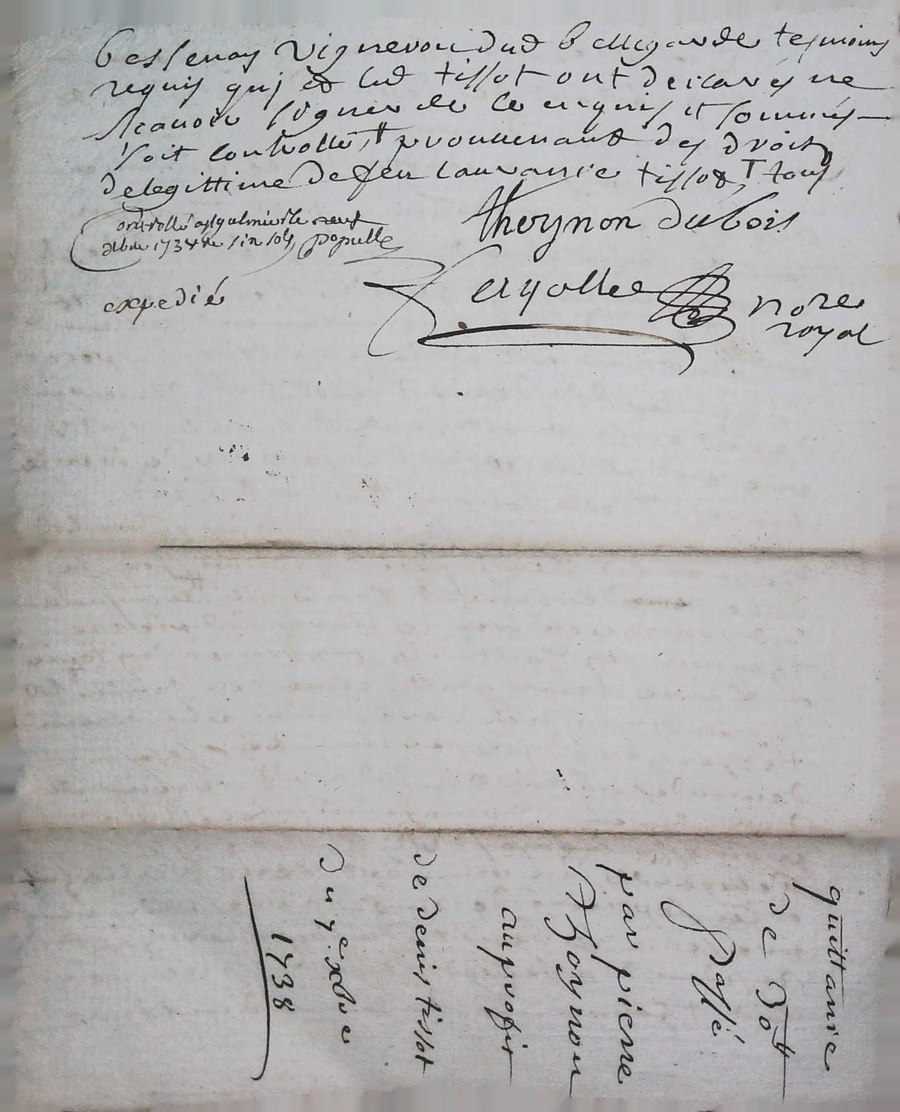 Bessenay vigneron dud bellegarde tesmoins
requis quj et led tissot ont declarés ne
scavoir signer de ce enquis et sommés
soit controllé, † prouvenant des droits
de legittime de feu laurance tissot, † tous
controllé a st galmier le neuf
xbre 1738 Re six sols populle
Theynon dubois
expedié
nore
royal
quittance
de dot
passé
par pierre
Theynon
au profit
de denis tissot
du 7e xbre
1738